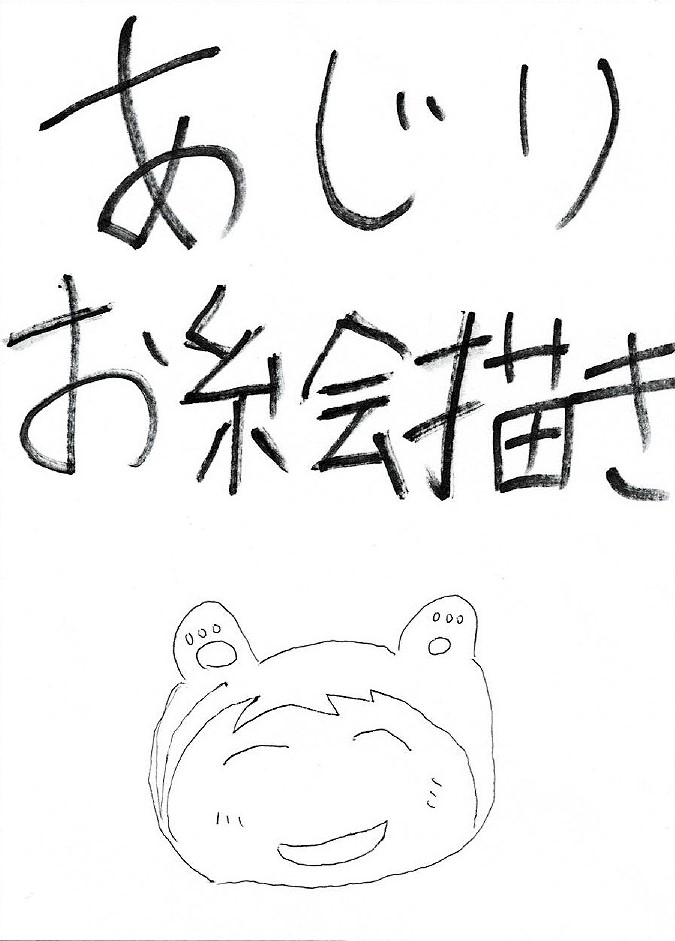 あじり
お絵描き